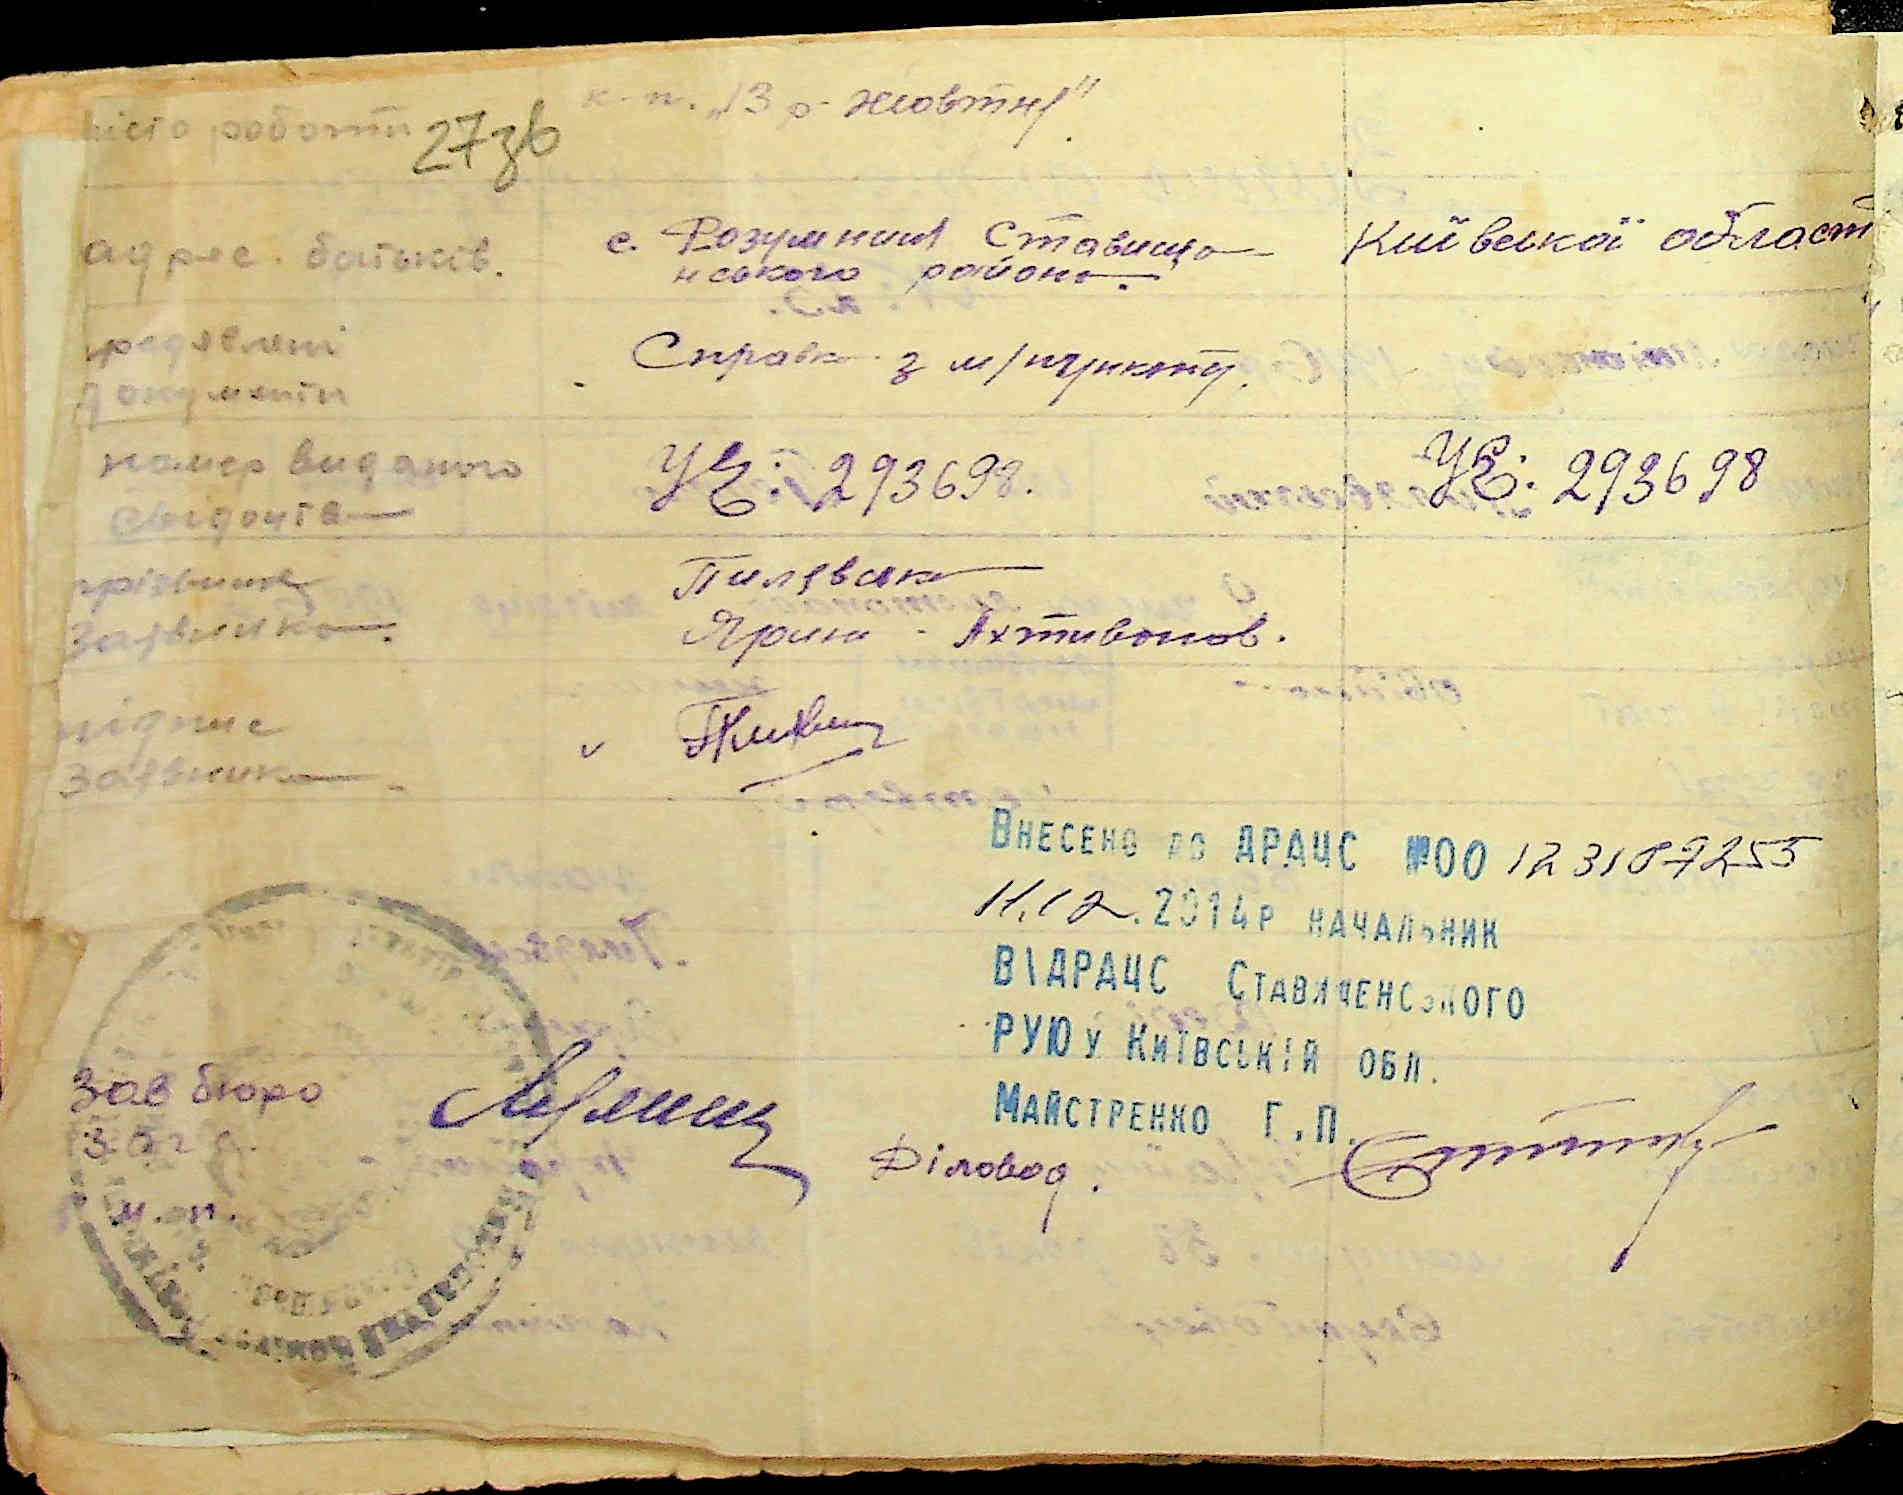 місто роботи 27зв к-п. „13 р- жовтня"
адрес. батьків. с. Розумниця Ставища- Київської област
нського район.
предявлені
документи Справк з м/пункту.
номер виданого УЕ: 293698. УЕ: 293698
свідоцтва
прізвище Пилявська
Заявника. Ярина
підпис
Заявника
Внесено до ДРАЦС №00 123107255
11.12.2014р начальник
ВІДРАЦС Ставищенського
РУЮ у Київській обл.
Майстренко Г.П.
Зав бюро
загс.
м.п.
Діловод.